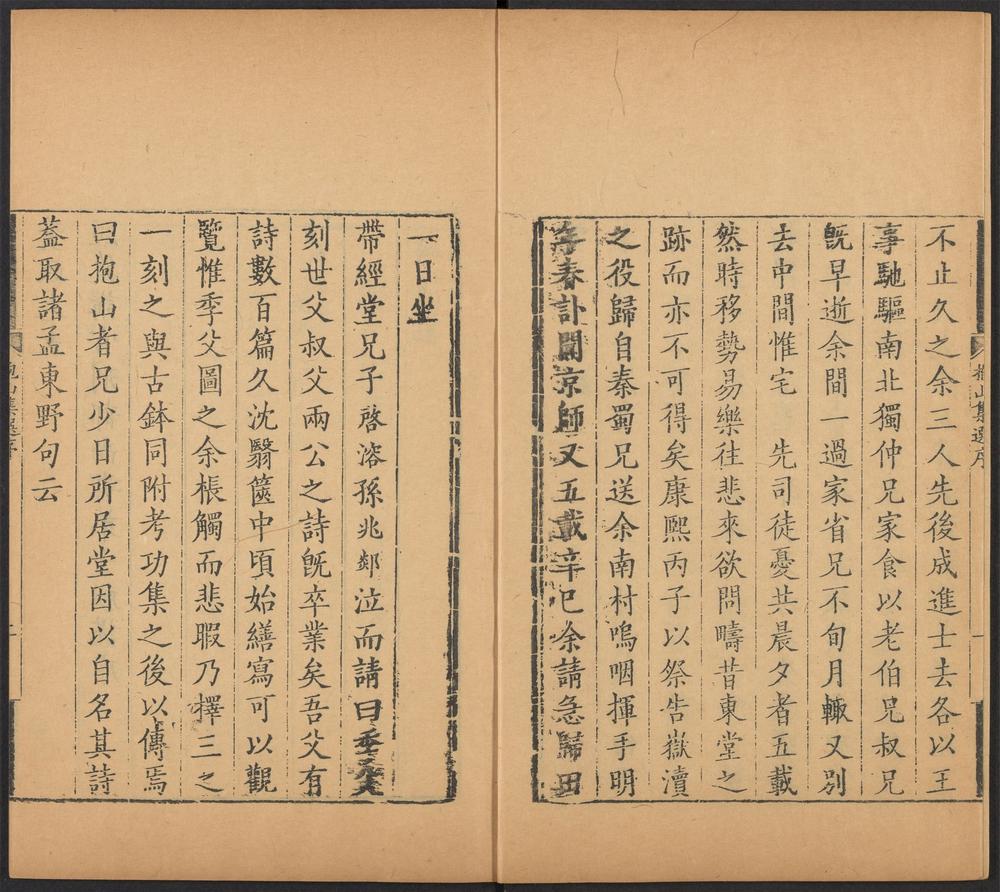 不止久之余三人先後成進士去各以王
事馳驅南北獨仲兄家食以老伯兄叔兄
旣早逝余間一過家省兄不旬月輙又別
去中間惟宅　先司徒憂共晨夕者五載
然時移勢易樂往悲來欲問疇昔東堂之
跡而亦不可得矣康熙丙子以祭告嶽瀆
之役歸自秦蜀兄送余南村嗚咽揮手明
年春訃聞京師又五載辛巳余請急歸田
抱山集選序
一
一日坐
帶經堂兄子啓溶孫兆鄰泣而請曰季父
刻世父叔父兩公之詩旣卒業矣吾父有
詩數百篇久沈翳篋中頃始繕寫可以觀
覽惟季父圖之余棖觸而悲暇乃擇三之
一刻之與古鉢同附考功集之後以傳焉
曰抱山者兄少日所居堂因以自名其詩
蓋取諸孟東野句云